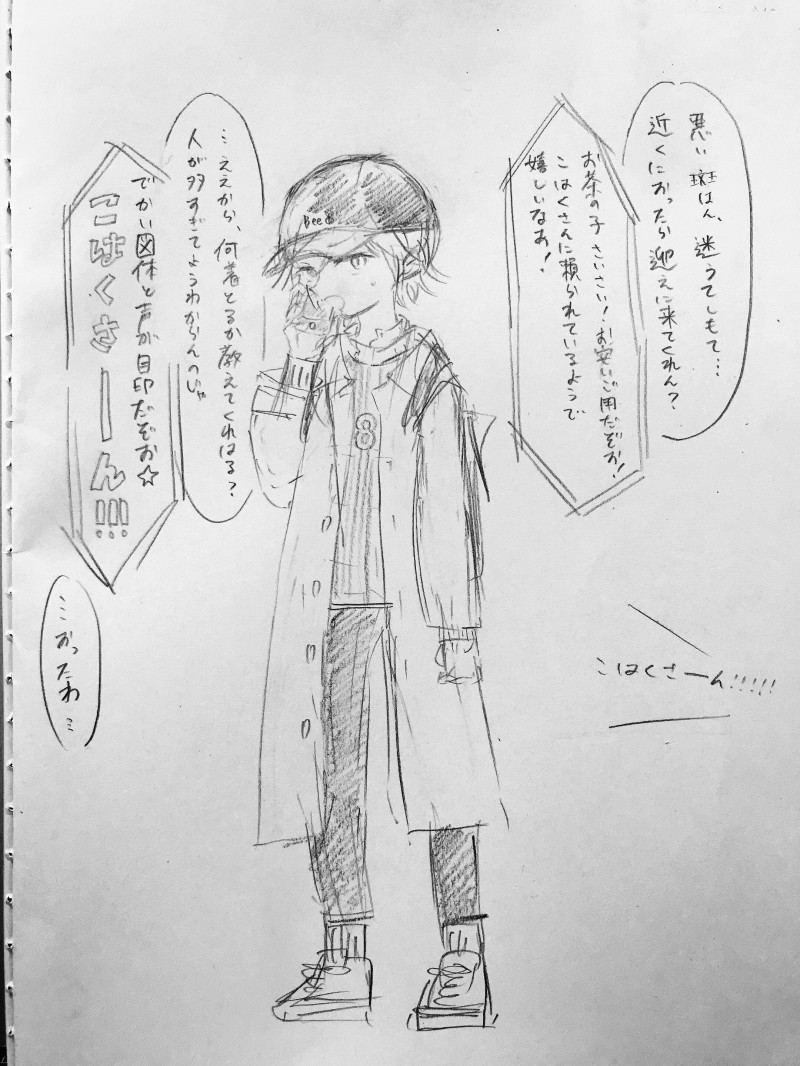 悪い斑はん、迷うてしもて…
近くにおったら迎えに来てくれん?
お茶の子さいさい!お安いご用だぞお!
こはくさんに頼られているようで
嬉しいなあ!
…ええから、何着とるか教えてくれはる?
人が多すぎてようわからんのじゃ
でかい図体と声が目印だぞお☆
こはくさーん!!!
…おったわ…
こはくさーん!!!!!
Bee
8